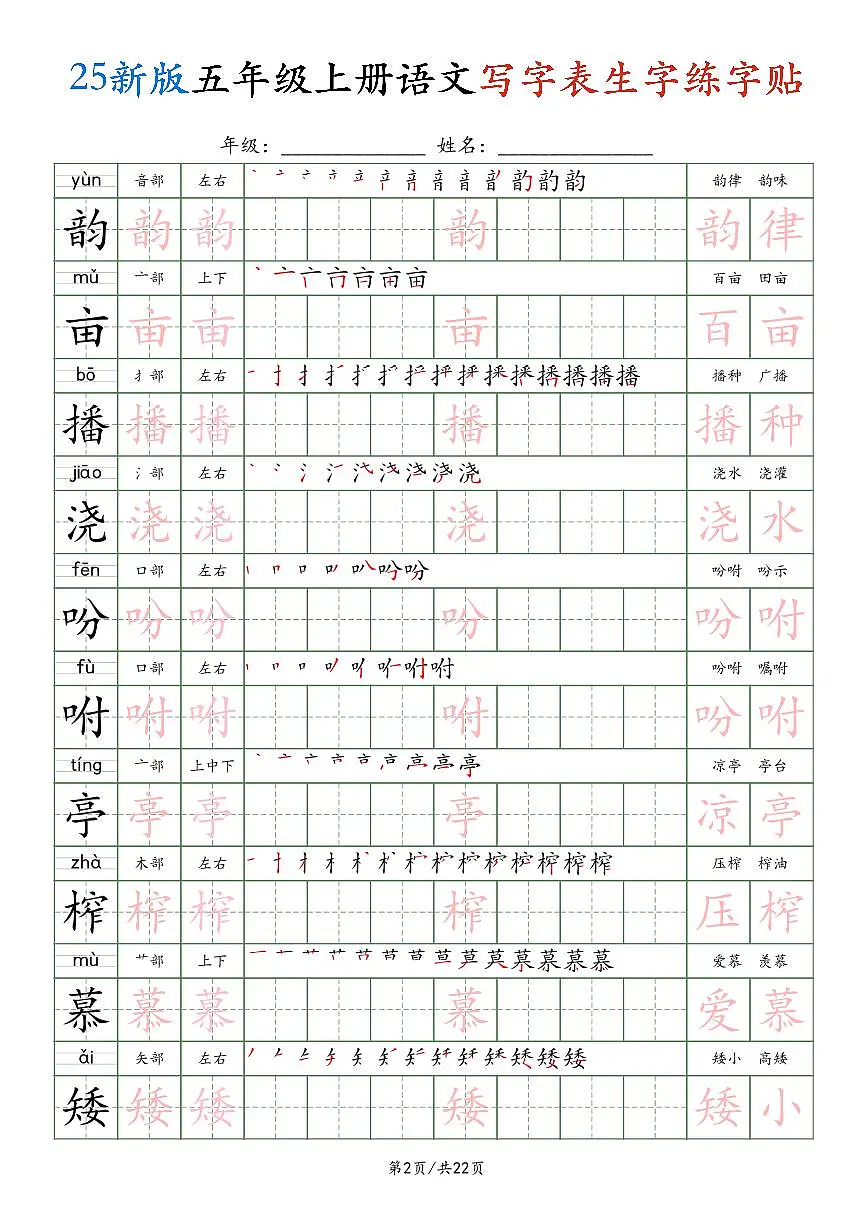 25新版五年级上册语文写字表生字练字贴
年级：______________ 姓名：_______________
yùn 音部 左右 韵韵 韵律 韵味
韵 韵 韵 韵 韵 律
mǔ 亠部 上下 亩 百亩 田亩
亩 亩 亩 亩 百 亩
bō 扌部 左右 播 播种 广播
播 播 播 播 播 种
jiāo 氵部 左右 浇 浇水 浇灌
浇 浇 浇 浇 浇 水
fēn 口部 左右 吩 吩咐 吩示
吩 吩 吩 吩 吩 咐
fù 口部 左右 咐 吩咐 嘱咐
咐 咐 咐 咐 吩 咐
tíng 亠部 上中下 亭 凉亭 亭台
亭 亭 亭 亭 凉 亭
zhà 木部 左右 榨 压榨 榨油
榨 榨 榨 榨 压 榨
mù 艹部 上下 慕 爱慕 羡慕
慕 慕 慕 慕 爱 慕
ǎi 矢部 左右 矮 矮小 高矮
矮 矮 矮 矮 矮 小
第2页/共22页